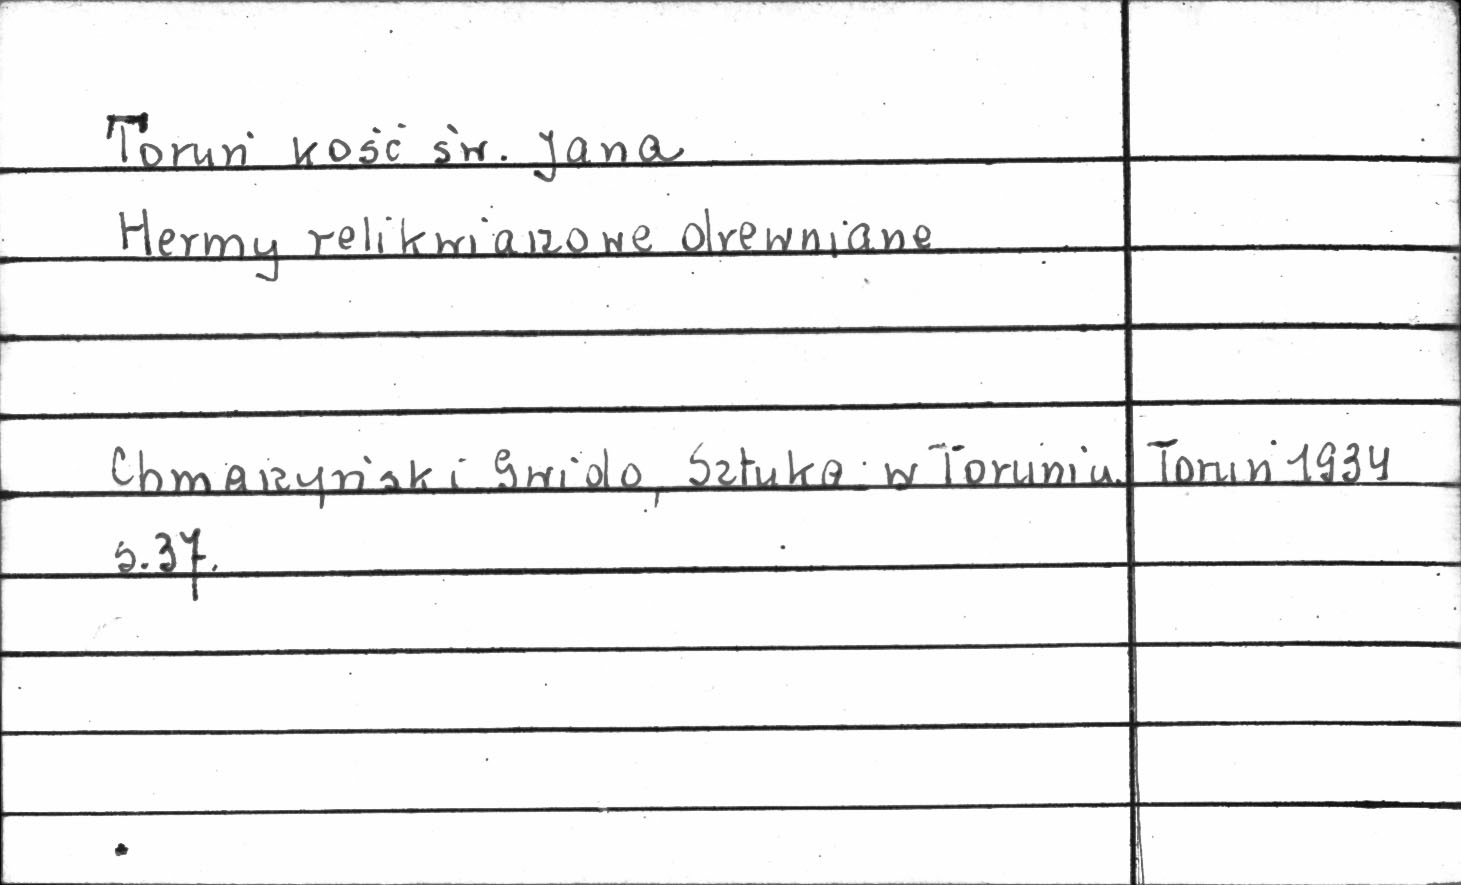 Toruń kość św. Jana
Hermy relikwiarzowe drewniane
Chmarzyński Gwido, Sztuka w Toruniu. Toruń 1934
s. 37.